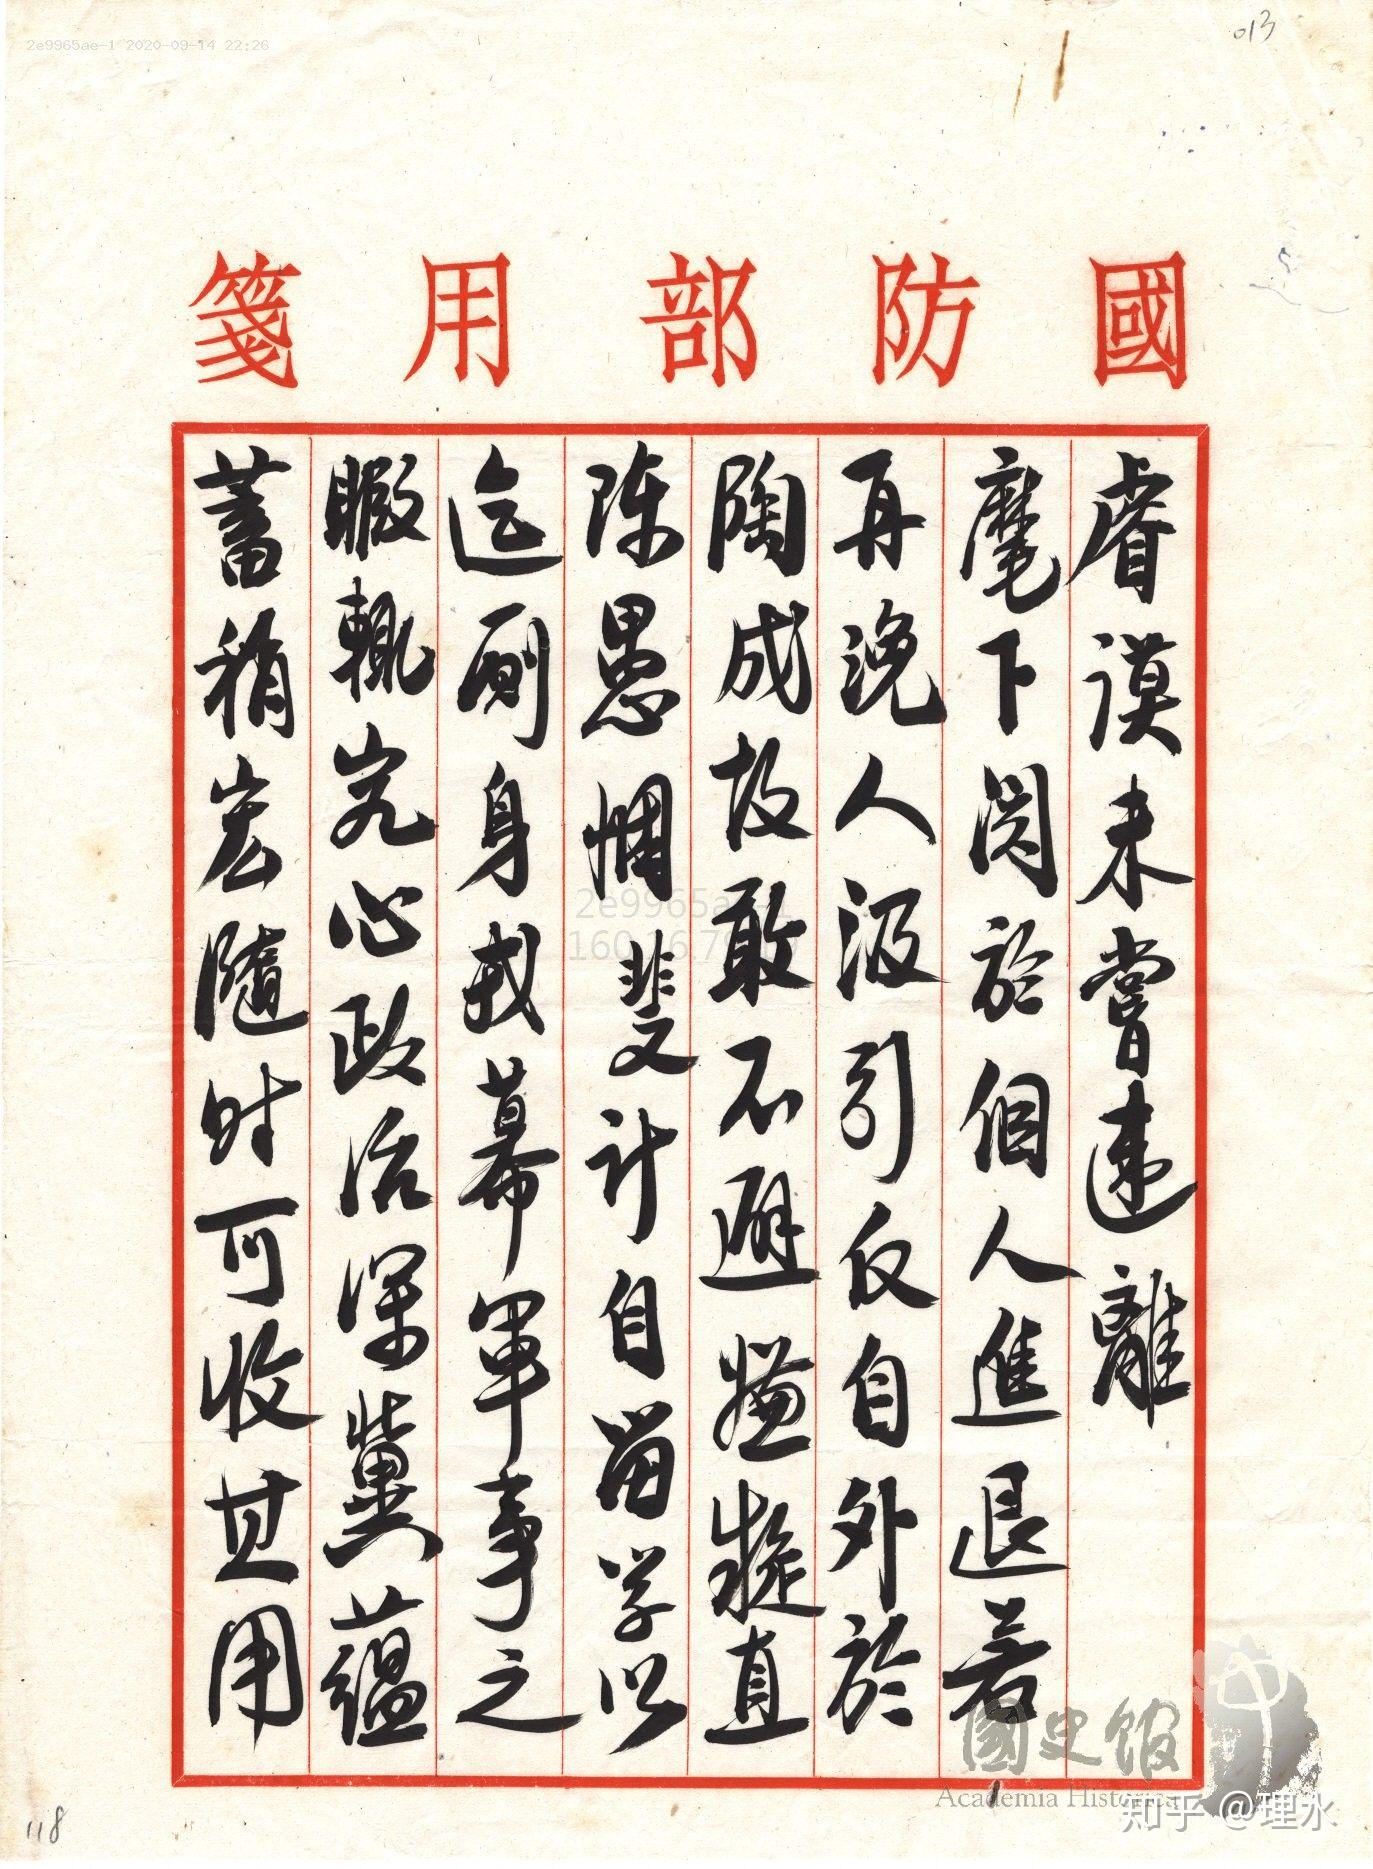 2e9965ae-1 2020-09-14 22:26
013
國防部用箋
睿謨未嘗違離
麾下関於個人進退若
再浼人汲引反自外於
陶成故敢不避嫌疑直
陳愚悃斐計自留学以
迄廁身戎幕軍事之
暇輒究心政治深冀蘊
蓄稍宏隨时可收其用
2e9965ae-1
國史館
Academia Historica
知乎 @理水
118